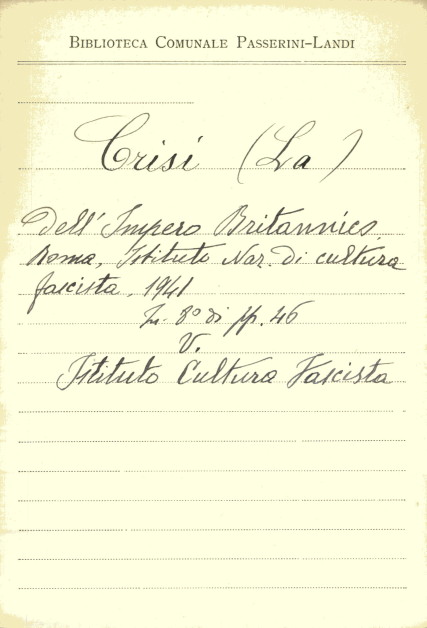 BIBLIOTECA COMUNALE PASSERINI-LANDI
Crisi (La)
dell'Impero Britannico.
Roma, Istituto Naz. di cultura
fascista, 1941
In. 8° di pp. 46
V.
Istituto Cultura Fascista